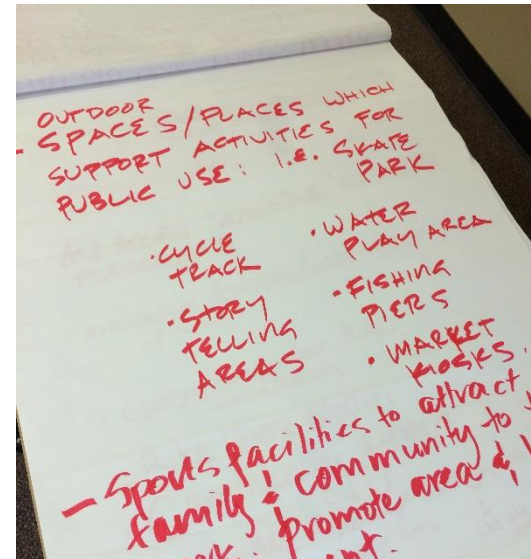 OUTDOOR
- SPACES/PLACES WHICH
SUPPORT ACTIVITIES FOR
PUBLIC USE: i.e. SKATE
PARK
• CYCLE
TRACK
• STORY
TELLING
AREAS
• WATER
PLAY AREA
• FISHING
PIERS
• MARKET
KIOSKS.
- Sports facilities to attract
family & community to
promote area &